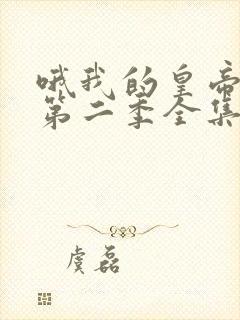 哦我的皇帝
第二季全集
虞磊